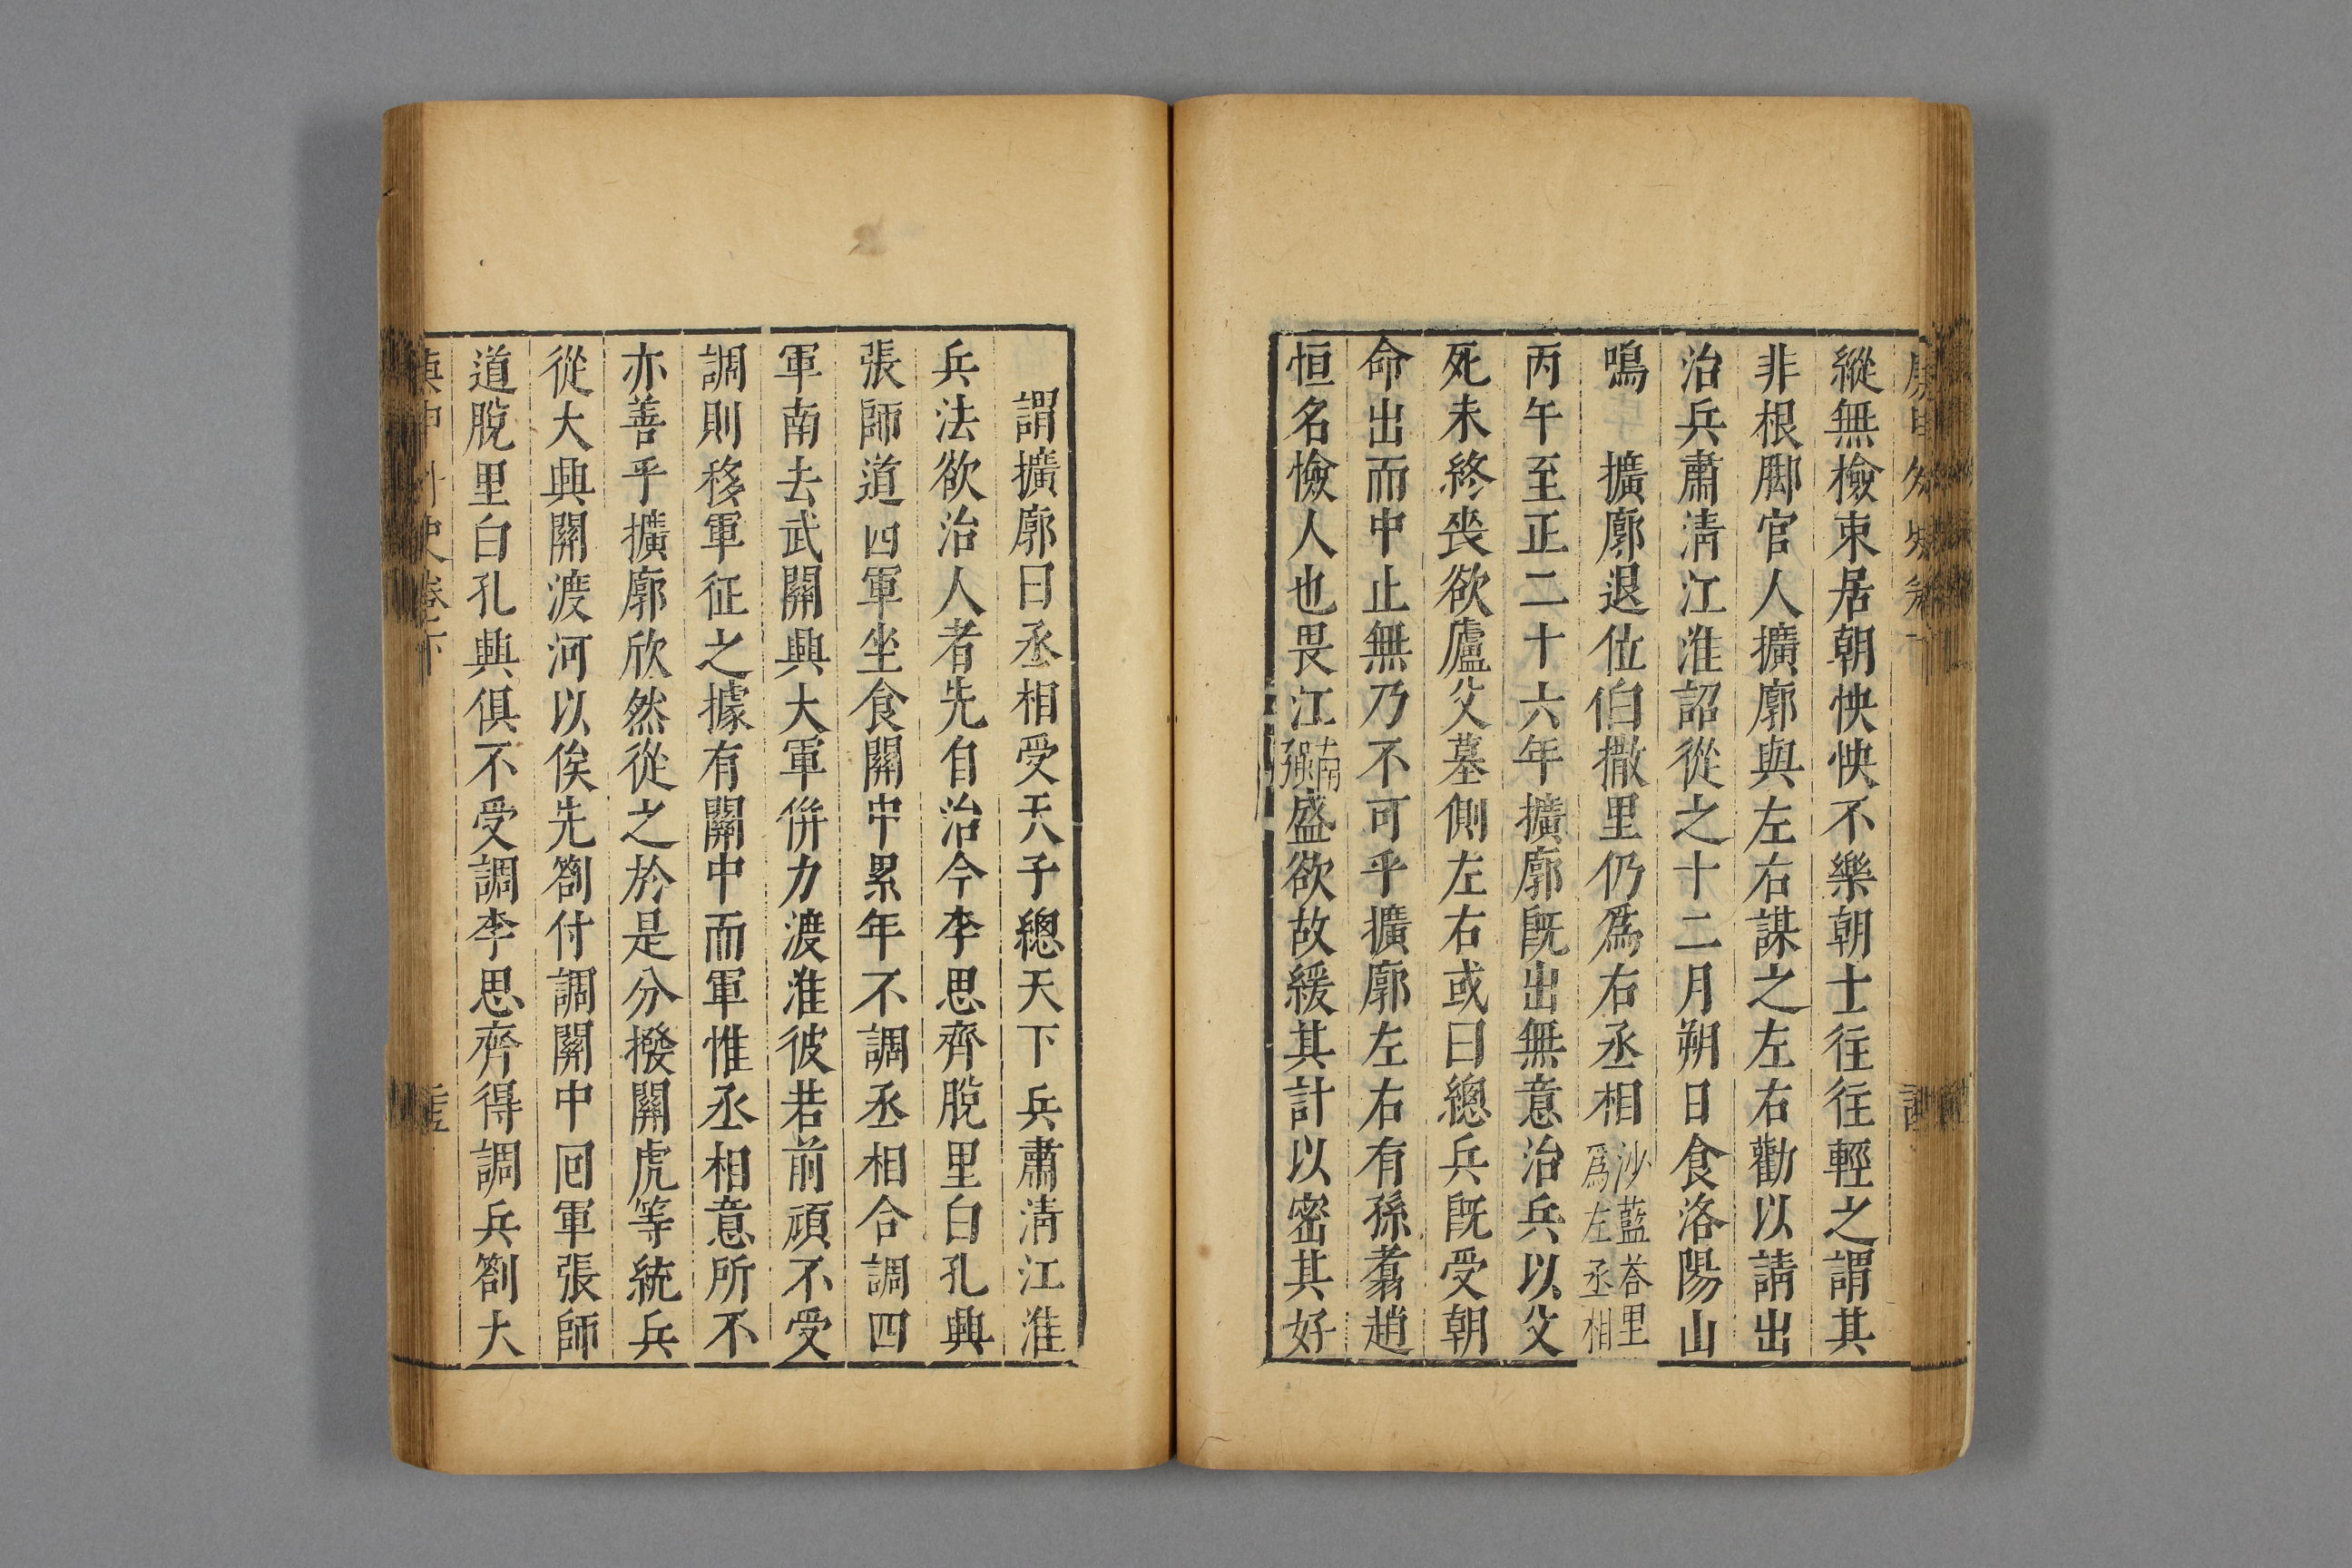 縱無檢束居朝怏怏不樂朝士往往輕之謂其
非根脚官人擴廓與左右謀之左右勸以請出
治兵肅清江淮詔從之十二月朔日食洛陽山
鳴　擴廓退位伯撒里仍爲右丞相沙藍荅里爲左丞相
丙午至正二十六年擴廓旣出無意治兵以父
死未終喪欲廬父墓側左右或曰總兵旣受朝
命出而中止無乃不可乎擴廓左右有孫翥趙
恒名憸人也畏江南強盛欲故緩其計以密其好
謂擴廓曰丞相受天子總天下兵肅清江淮
兵法欲治人者先自治今李思齊脫里白孔興
張師道四軍坐食關中累年不調丞相合調四
軍南去武關與大軍併力渡淮彼若前頑不受
調則移軍征之據有關中而軍惟丞相意所不
亦善乎擴廓欣然從之於是分撥關虎等統兵
從大興關渡河以俟先劄付調關中回軍張師
道脫里白孔興俱不受調李思齊得調兵劄大
史卷下